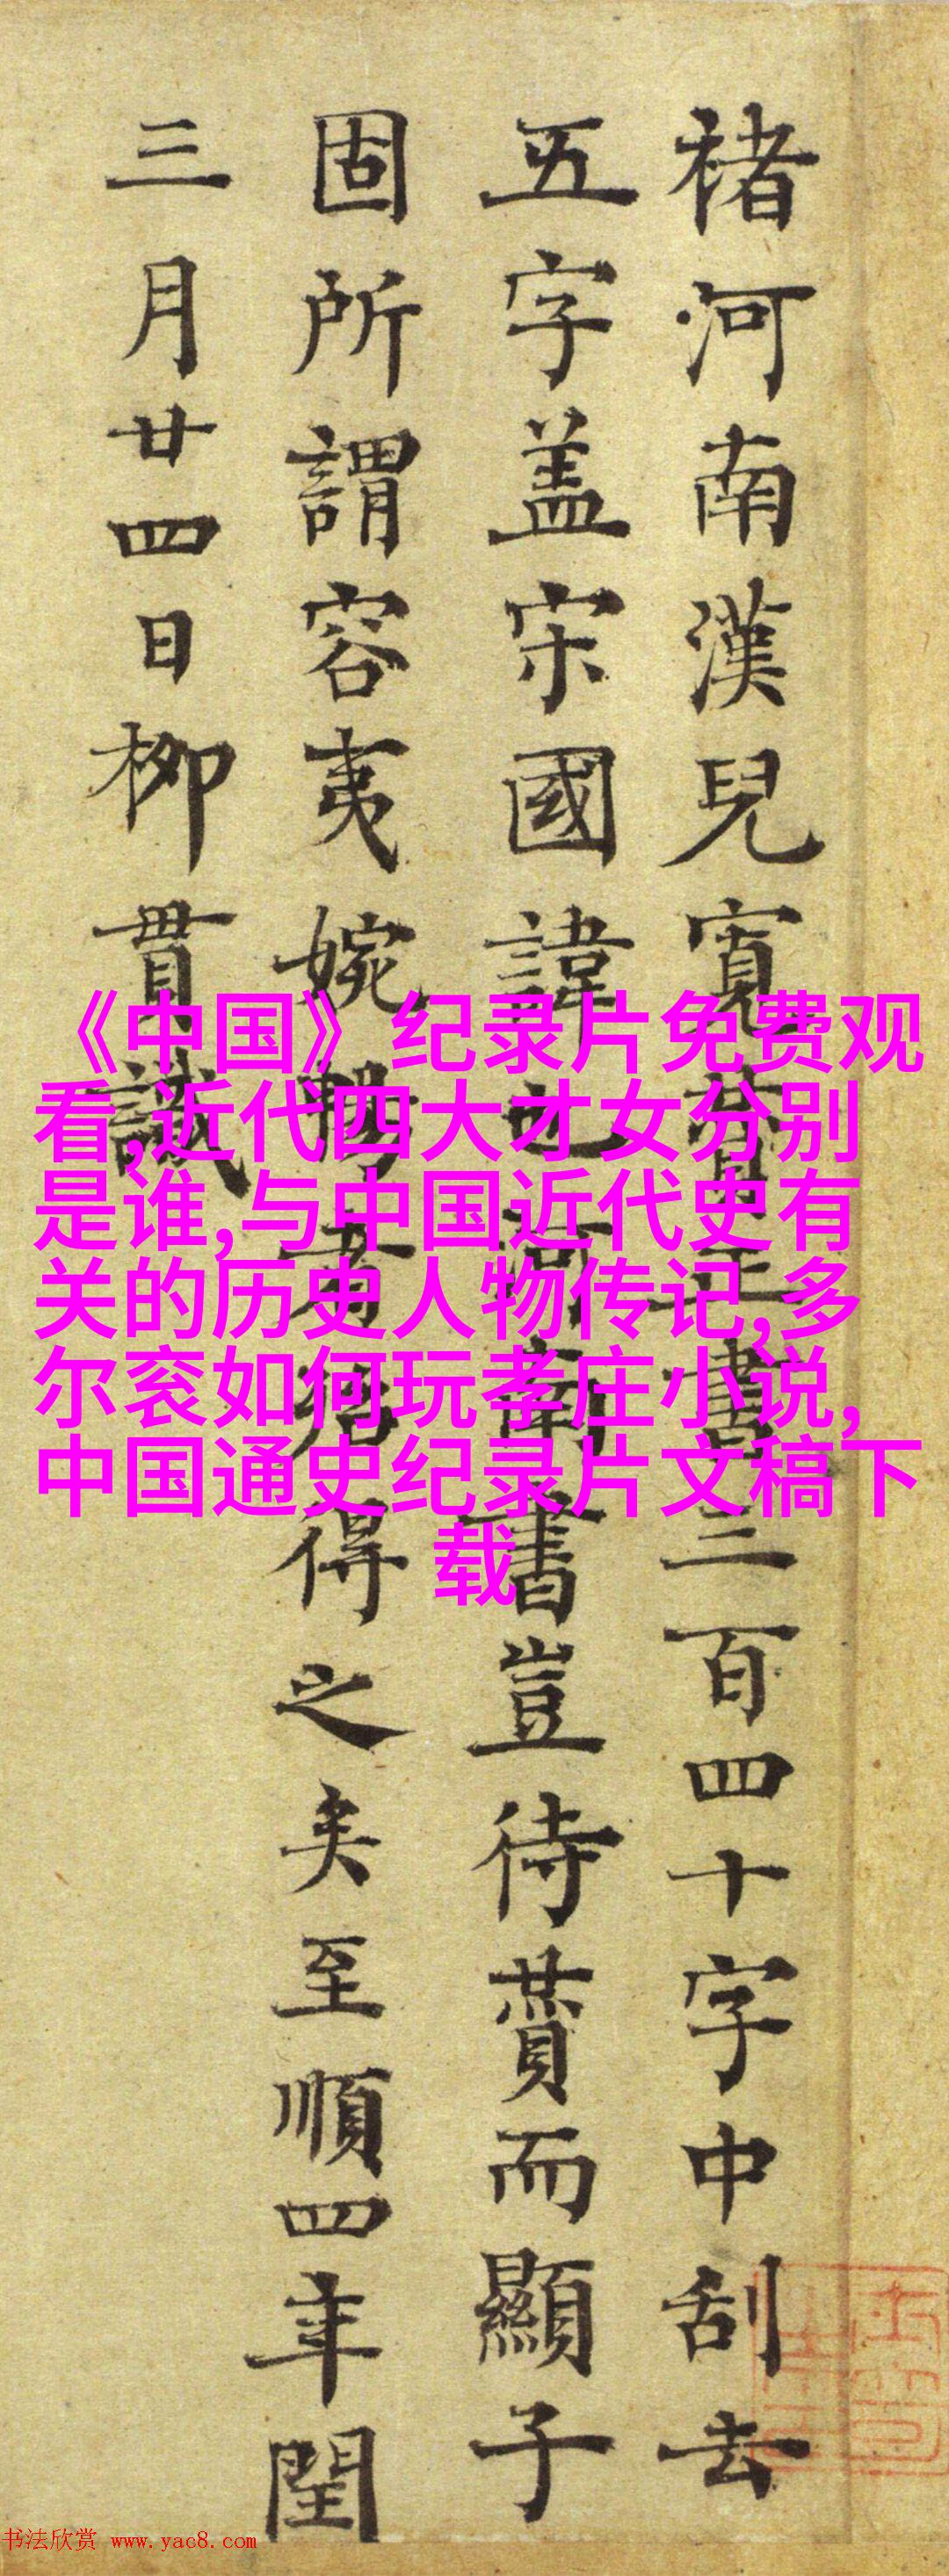 褚河南漢兒寬贊正書三百四十字中刮去
五字盖宋國諱也河南書豈待賛而顯子
固所謂容夷婉暢者得之矣至順四年閏
三月廿四日柳貫識
《中国》纪录片免费观
看,近代四大才女分别
是谁,与中国近代史有
关的历史人物传记,多
尔衮如何玩孝庄小说,
中国通史纪录片文稿下
载
书法欣赏 www.yac8.com